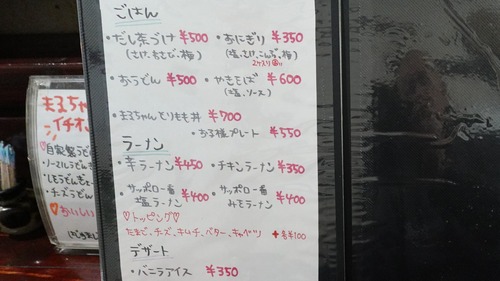 ごはん
・だし茶づけ ¥500
(さけ、わさび、梅)
・おにぎり ¥350
(塩、さけ、こんぶ、梅)
2ケスリ
・おうどん ¥500
・やきそば ¥600
(塩、ソース)
・まるちゃんとりもも丼 ¥700
・お子様プレート ¥550
ラーメン
・辛ラーメン ¥450
・チキンラーメン ¥350
・サッポロ一番 塩ラーメン ¥400
・サッポロ一番 みそラーメン ¥400
♡トッピング♡
たまご、チーズ、キムチ、バター、キャベツ + 各¥100
デザート
・バニラアイス ¥350
まるちゃ
イチオ
・自家製うど
・ノーマルうどん
・チーズうどん
♡おいしい